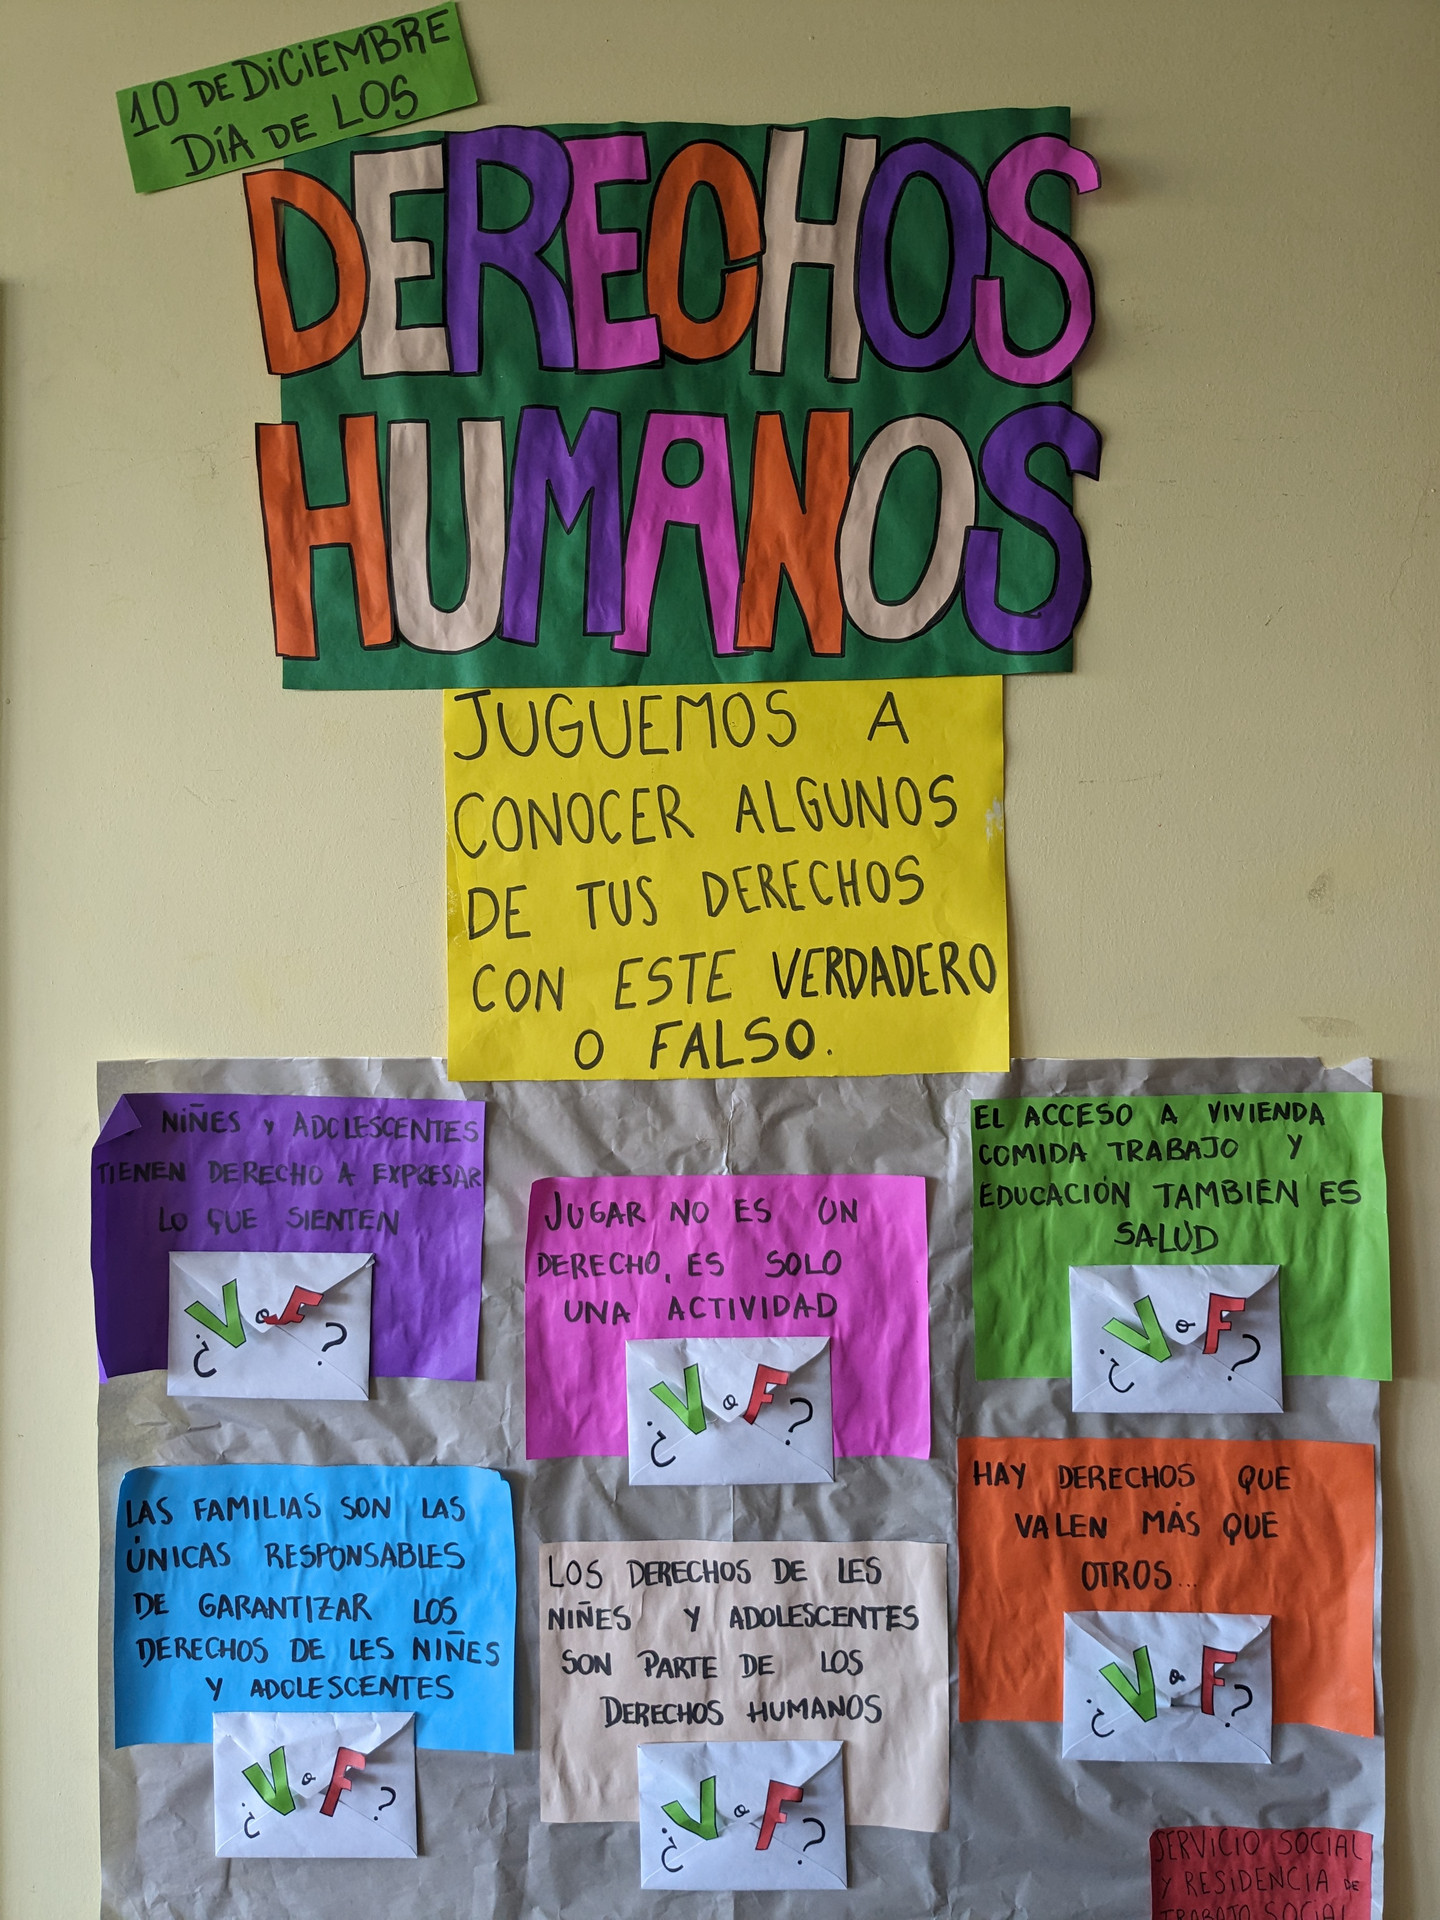 10 DE DiCiEMBRE
DÍA DE LOS
DERECHOS
HUMANOS
JUGUEMOS A
CONOCER ALGUNOS
DE TUS DERECHOS
CON ESTE VERDADERO
O FALSO.
NIÑES Y ADOLESCENTES
TIENEN DERECHO A EXPRESAR
LO QUE SIENTEN
¿V o F?
JUGAR NO ES UN
DERECHO, ES SOLO
UNA ACTIVIDAD
¿V o F?
EL ACCESO A VIVIENDA
COMIDA TRABAJO Y
EDUCACIÓN TAMBIÉN ES
SALUD
¿V o F?
LAS FAMILIAS SON LAS
ÚNICAS RESPONSABLES
DE GARANTIZAR LOS
DERECHOS DE LES NIÑES
Y ADOLESCENTES
¿V o F?
LOS DERECHOS DE LES
NIÑES Y ADOLESCENTES
SON PARTE DE LOS
DERECHOS HUMANOS
¿V o F?
HAY DERECHOS QUE
VALEN MÁS QUE
OTROS...
¿V o F?
SERVICIO SOCIAL
Y RESIDENCIA DE
TRABAJO SOCIAL